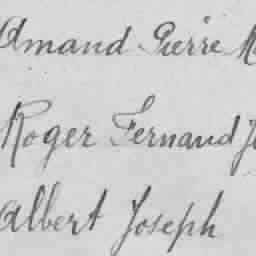 Amand Pierre M
Roger Fernand J
Albert Joseph